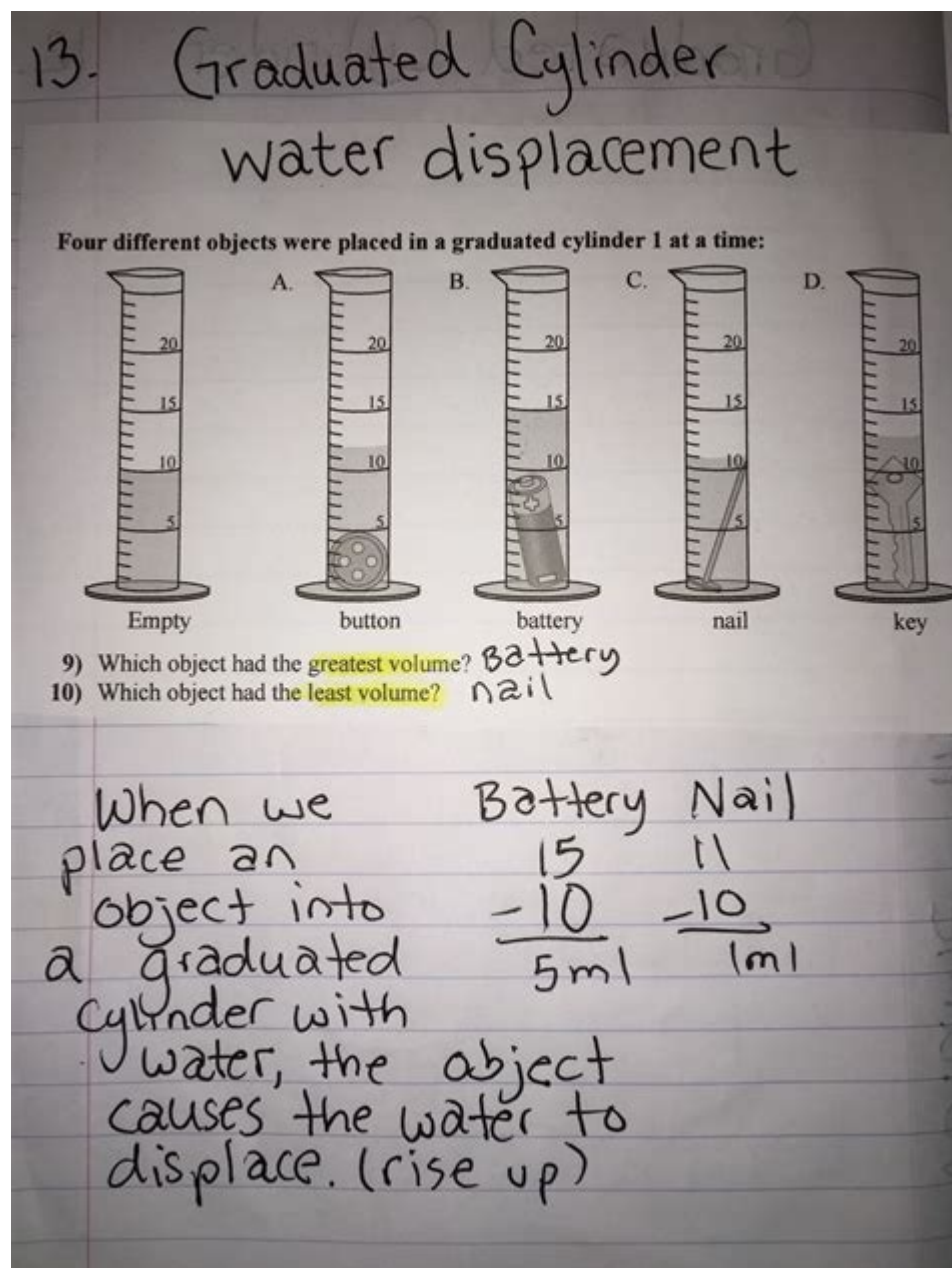 13. Graduated Cylinder
water displacement
Four different objects were placed in a graduated cylinder 1 at a time:
A. B. C. D.
20 20 20 20 20
15 15 15 15 15
10 10 10 10 10
5 5 5 5 5
+
-
Empty button battery nail key
9) Which object had the greatest volume? Battery
10) Which object had the least volume? nail
When we
place an
object into
a graduated
cylinder with
water, the abject
causes the water to
displace. (rise up)
Battery Nail
15 11
-10 -10
5ml 1ml